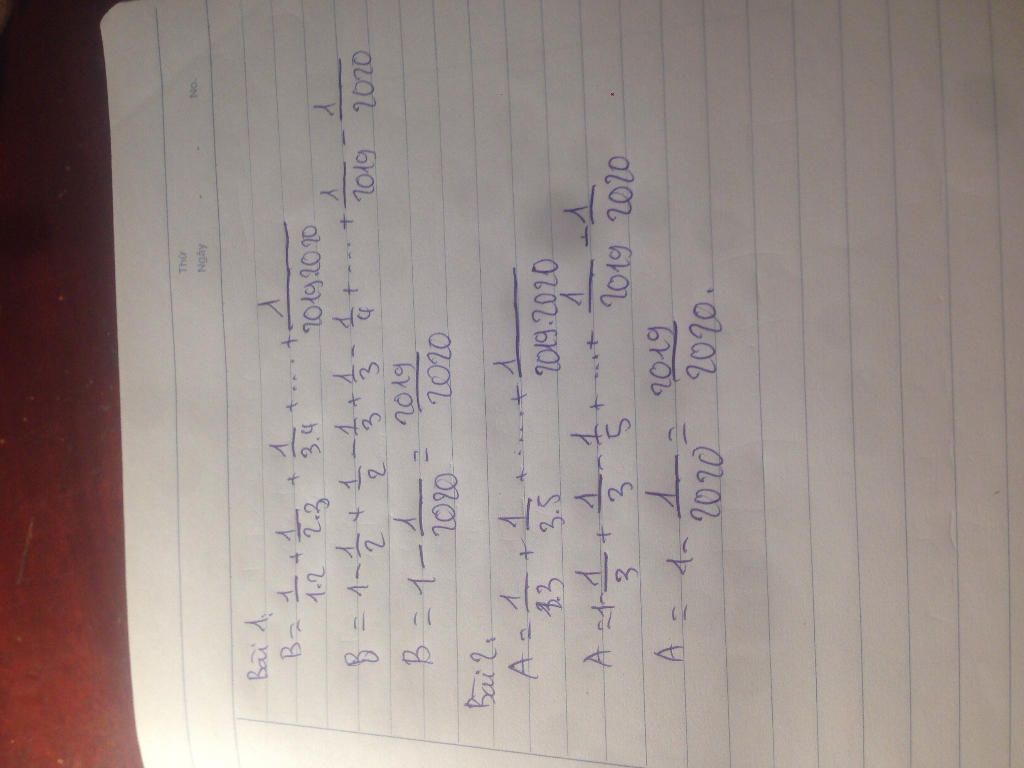 Thứ
Ngày
No.
Bài 1,
B = 1/1.2 + 1/2.3 + 1/3.4 + ... + 1/2019.2020
B = 1 - 1/2 + 1/2 - 1/3 + 1/3 - 1/4 + .... + 1/2019 - 1/2020
B = 1 - 1/2020 = 2019/2020
Bài 2,
A = 1/1.3 + 1/3.5 + ...... + 1/2019.2020
A = 1 - 1/3 + 1/3 - 1/5 + ....+ 1/2019 - 1/2020
A = 1 - 1/2020 = 2019/2020.